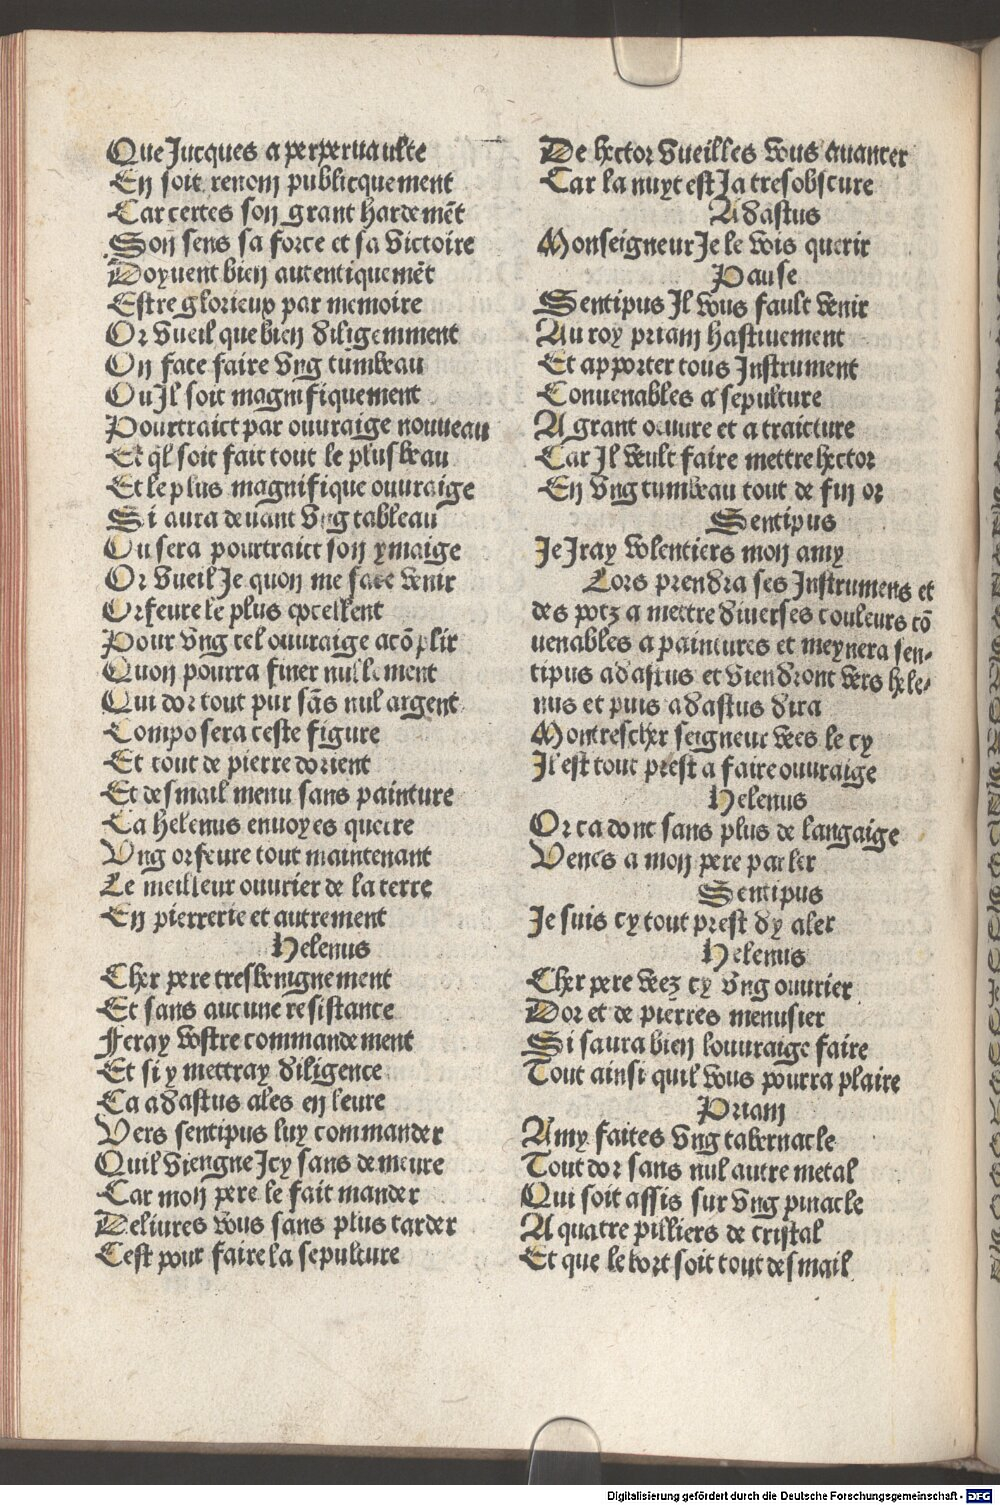 Que Jucques a perpetuaulte
En soit renom publicquement
Car certes son grant hardemẽt
Son sens sa force et sa victoire
Doyuent bien autentiquemẽt
Estre glorieux par memoire
Or vueil que bien diligemment
On face faire vng tumbeau
Ou Il soit magnifiquement
Pourtraict par ouuraige nouueau
Et ql soit fait tout le plus beau
Et le plus magnifique ouuraige
Si aura deuant vng tableau
Ou sera pourtraict son ymaige
Or vueil Je quon me face venir
Orfeure le plus excellent
Pour vng tel ouuraige acõplir
Quon pourra finer nullement
Qui dor tout pur sãs nul argent
Composera ceste figure
Et tout de pierre dorient
Et desmail menu sans painture
Ca helenus enuoyes querre
Vng orfeure tout maintenant
Le meilleur ouurier de la terre
En pierrerie et autrement
Helenus
Cher pere tresbenignement
Et sans aucune resistance
Feray vostre commandement
Et si y mettray diligence
Ca adastus ales en leure
Vers sentipus luy commander
Quil viengne Icy sans demeure
Car mon pere le fait mander
Deliures vous sans plus tarder
Cest pour faire la sepulture
De hector vueilles vous auancer
Car la nuyt est Ja tresobscure
Adastus
Monseigneur Je le vois querir
Pause
Sentipus Il vous fault venir
Au roy priam hastiuement
Et apporter tous Instrument
Conuenables a sepulture
A grant oeuure et a traicture
Car Il veult faire mettre hector
En vng tumbeau tout de fin or
Sentipus
Je Iray volentiers mon amy
Lors prendra ses Instrumens et
des potz a mettre diuerses couleurs cõ
uenables a paintures et meynera sen-
tipus adastus et viendront vers hele-
nus et puis adastus dira
Mon trescher seigneur vees le cy
Il est tout prest a faire ouuraige
Helenus
Or ca dont sans plus de langaige
Venes a mon pere parler
Sentipus
Je suis cy tout prest dy aler
Helenus
Cher pere veez cy vng ouurier
Dor et de pierres menusier
Si saura bien louuraige faire
Tout ainsi quil vous pourra plaire
Priam
Amy faites vng tabernacle
Tout dor sans nul autre metal
Qui soit assis sur vng pinacle
A quatre pilliers de cristal
Et que le bort soit tout desmail
Digitalisierung gefördert durch die Deutsche Forschungsgemeinschaft - DFG